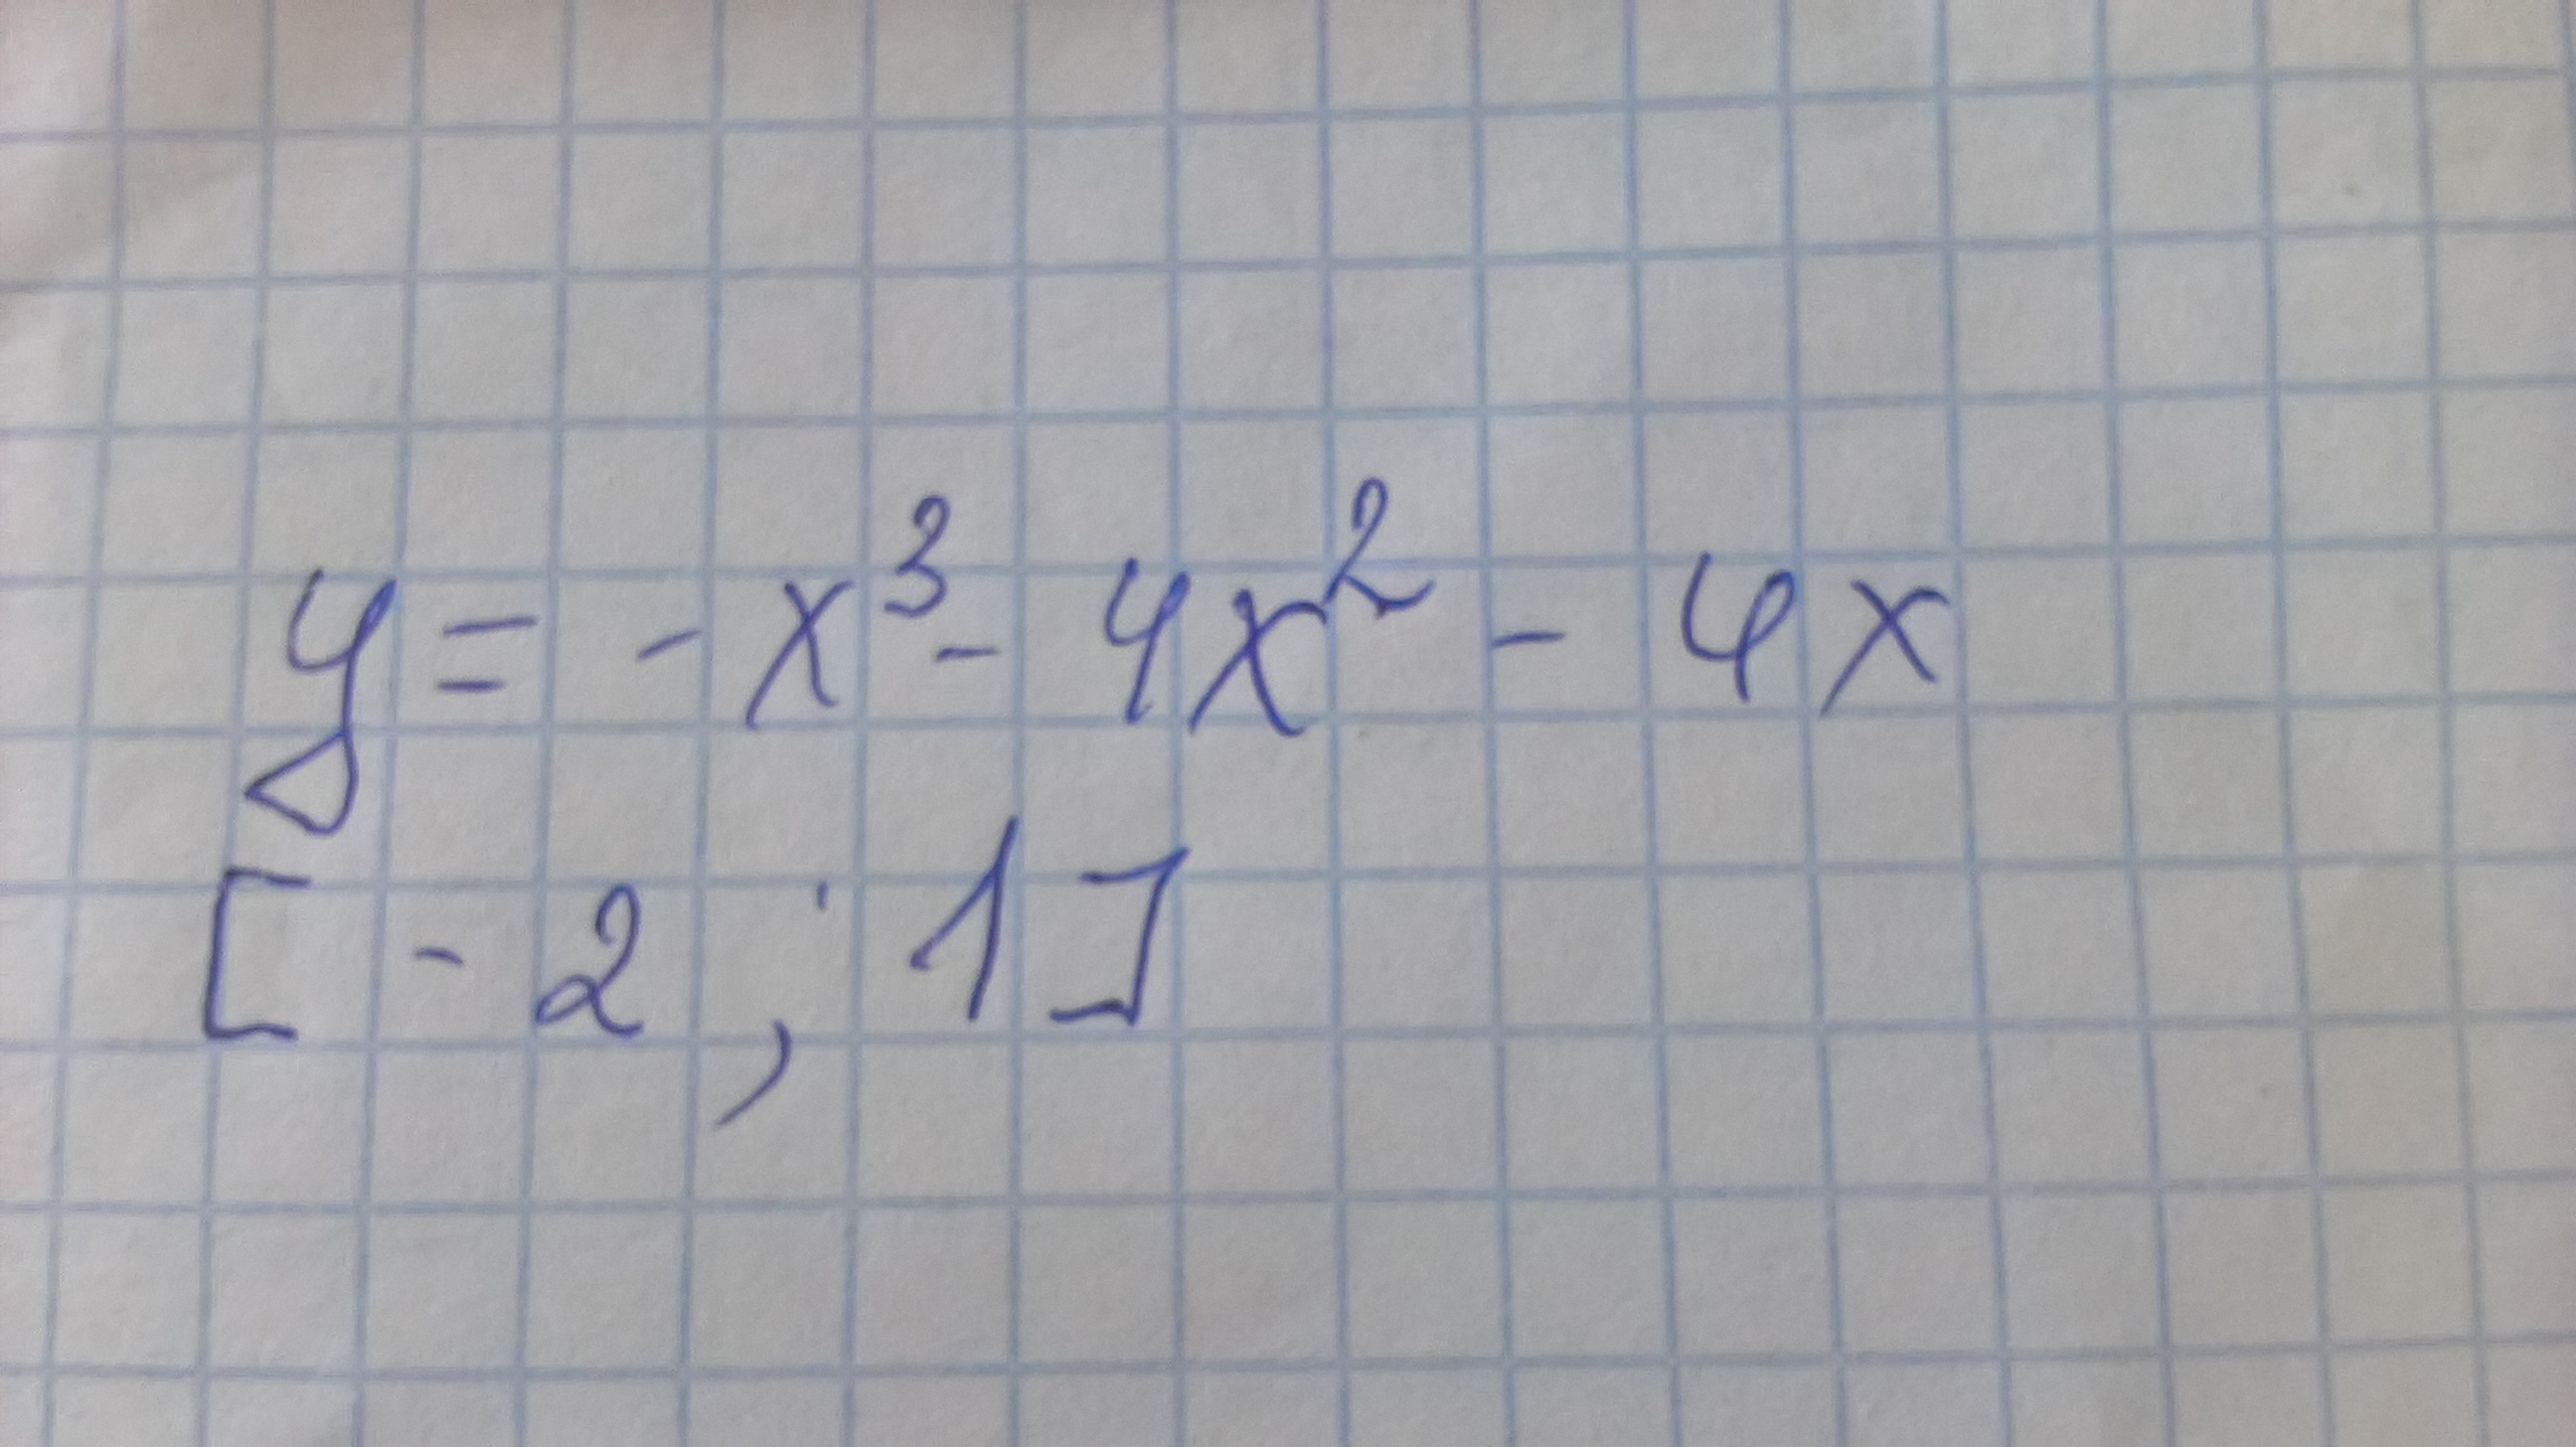 y = - x³ - 4x² - 4x
[ - 2 ; 1 ]